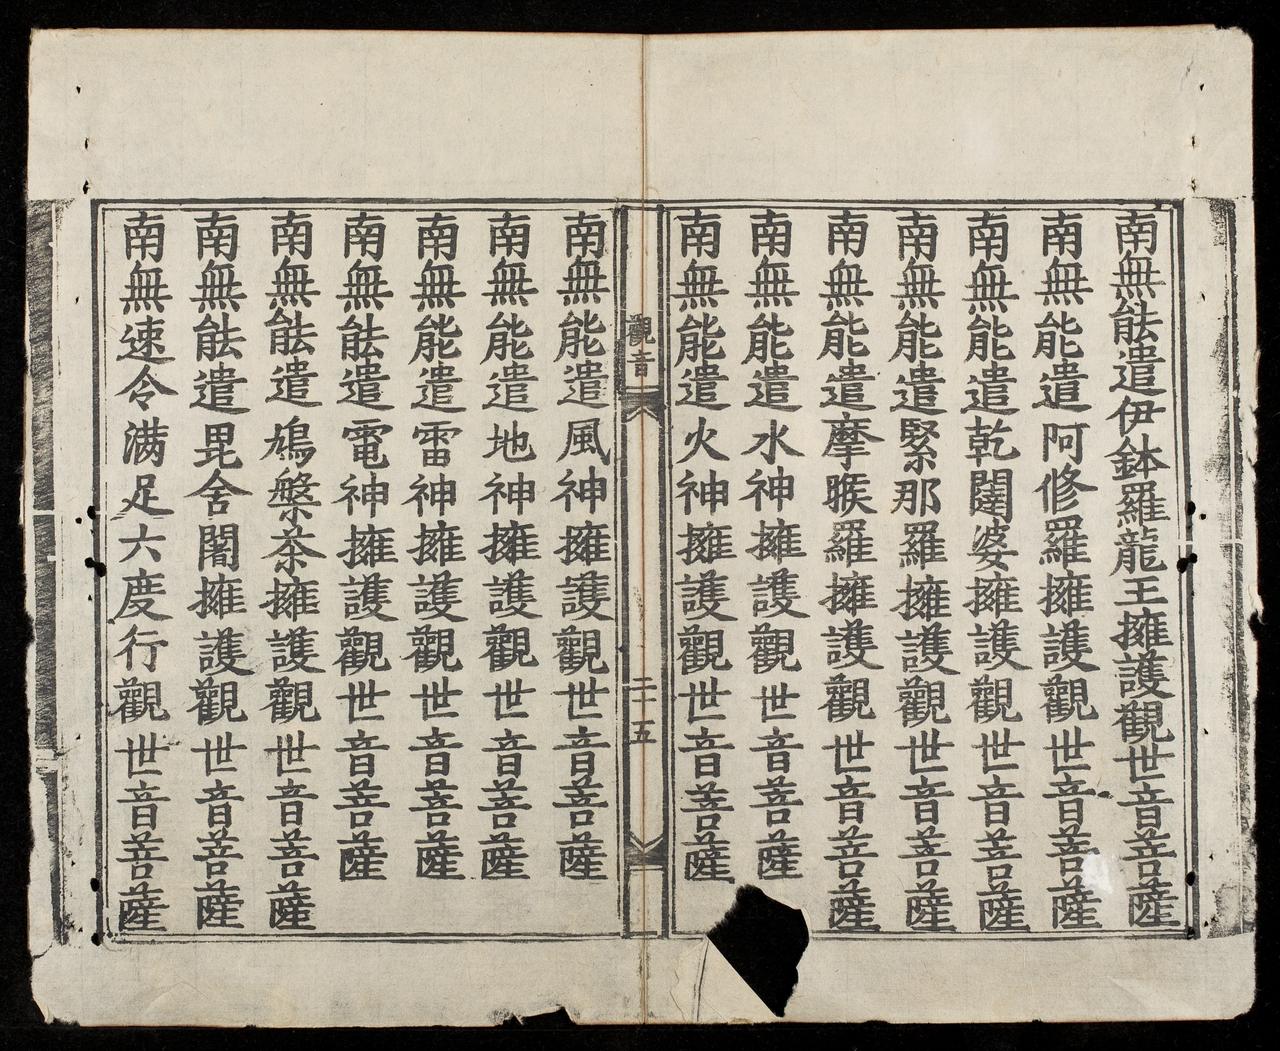 南無能遣伊鉢羅龍王擁護觀世音菩薩
南無能遣阿修羅擁護觀世音菩薩
南無能遣乾闥婆擁護觀世音菩薩
南無能遣緊那羅擁護觀世音菩薩
南無能遣摩睺羅擁護觀世音菩薩
南無能遣水神擁護觀世音菩薩
南無能遣火神擁護觀世音菩薩
觀音
二十五
南無能遣風神擁護觀世音菩薩
南無能遣地神擁護觀世音菩薩
南無能遣雷神擁護觀世音菩薩
南無能遣電神擁護觀世音菩薩
南無能遣鳩槃茶擁護觀世音菩薩
南無能遣毘舍闍擁護觀世音菩薩
南無速令滿足六度行觀世音菩薩